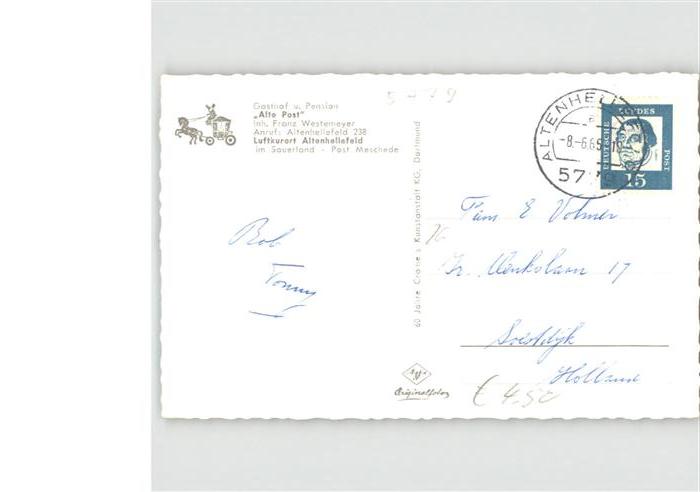 Gasthof u. Pension
„Alte Post"
Inh. Franz Westemeyer
Anruf: Altenhellefeld 238
Luftkurort Altenhellefeld
im Sauerland - Post Meschede
ALTENHELL
-8.-6.65
57
DEUTSCHE BUNDESPOST
15
60 Jahre Cramers Kunstanstalt KG, Dortmund
Fam E Volmer
17
Soestdijk
Holland
Bob
Tonny
Originalfoto
€ 4.50